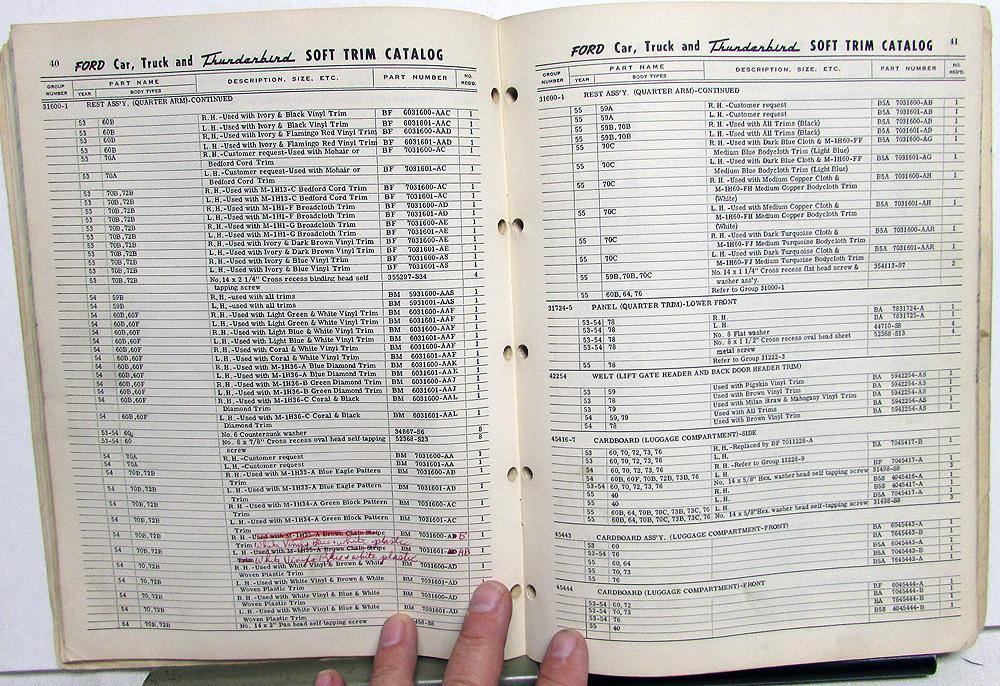 40 FORD Car, Truck and Thunderbird SOFT TRIM CATALOG
GROUP NUMBER YEAR PART NAME BODY TYPES DESCRIPTION, SIZE, ETC. PART NUMBER NO. REQ'D.
31600-1 REST ASS'Y. (QUARTER ARM)-CONTINUED
53 60B R.H.-Used with Ivory & Black Vinyl Trim BF 6031600-AAC 1
53 60B L.H.-Used with Ivory & Black Vinyl Trim BF 6031601-AAC 1
53 60B R.H.-Used with Ivory & Flamingo Red Vinyl Trim BF 6031600-AAD 1
53 60B L.H.-Used with Ivory & Flamingo Red Vinyl Trim BF 6031601-AAD 1
53 70A R.H.-Customer request-Used with Mohair or BF 7031600-AC 1
Bedford Cord Trim
53 70A L.H.-Customer request-Used with Mohair or BF 7031601-AC 1
Bedford Cord Trim
53 70B,72B R.H.-Used with M-1H13-C Bedford Cord Trim BF 7031600-AC 1
53 70B,72B L.H.-Used with M-1H13-C Bedford Cord Trim BF 7031601-AC 1
53 70B,72B R.H.-Used with M-1H1-F Broadcloth Trim BF 7031600-AD 1
53 70B,72B L.H.-Used with M-1H1-F Broadcloth Trim BF 7031601-AD 1
53 70B,72B R.H.-Used with M-1H1-G Broadcloth Trim BF 7031600-AE 1
53 70B,72B L.H.-Used with M-1H1-G Broadcloth Trim BF 7031601-AE 1
53 70B,72B R.H.-Used with Ivory & Dark Brown Vinyl Trim
53 70B,72B L.H.-Used with Ivory & Dark Brown Vinyl Trim
53 70B,72B R.H.-Used with Ivory & Blue Vinyl Trim BF 7031600-AS 1
53 70B,72B L.H.-Used with Ivory & Blue Vinyl Trim BF 7031601-AS 1
53 70B,72B No.14 x 2 1/4" Cross recess binding head self 355297-S34 4
tapping screw
54 59B R.H.-used with all trims BM 5931600-AAS 1
54 59B L.H.-used with all trims BM 5931601-AAS 1
54 60B,60F R.H.-Used with Light Green & White Vinyl Trim
54 60B,60F L.H.-Used with Light Green & White Vinyl Trim
54 60B,60F R.H.-Used with Light Blue & White Vinyl Trim
54 60B,60F L.H.-Used with Light Blue & White Vinyl Trim
54 60B,60F R.H.-Used with Coral & White Vinyl Trim BM 6031600-AAF 1
54 60B,60F L.H.-Used with Coral & White Vinyl Trim BM 6031601-AAF 1
54 60B,60F R.H.-Used with M-1H36-A Blue Diamond Trim BM 6031600-AAK 1
54 60B,60F L.H.-Used with M-1H36-A Blue Diamond Trim BM 6031601-AAK 1
54 60B,60F R.H.-Used with M-1H36-B Green Diamond Trim BM 6031600-AAJ 1
54 60B,60F L.H.-Used with M-1H36-B Green Diamond Trim BM 6031601-AAJ 1
54 60B,60F R.H.-Used with M-1H36-C Coral & Black BM 6031600-AAL 1
Diamond Trim
54 60B,60F L.H.-Used with M-1H36-C Coral & Black BM 6031601-AAL 1
Diamond Trim
53-54 60 No. 6 Countersunk washer 34867-S6 8
53-54 60 No. 8 x 7/8" Cross recess oval head self-tapping 52368-S23 8
screw
54 70A R.H.-Customer request BM 7031600-AA 1
54 70A L.H.-Customer request BM 7031601-AA 1
54 70B,72B R.H.-Used with M-1H33-A Blue Eagle Pattern BM 7031600-AB 1
Trim
54 70B,72B L.H.-Used with M-1H33-A Blue Eagle Pattern BM 7031601-AB 1
Trim
54 70B,72B R.H.-Used with M-1H34-A Green Block Pattern BM 7031600-AC 1
Trim
54 70B,72B L.H.-Used with M-1H34-A Green Block Pattern BM 7031601-AC 1
Trim
54 70B,72B R.H.-Used with M-1H35-A Brown Chain Stripe BM 7031600-AD B 1
Trim White Vinyl Blue & white plastic
54 70B,72B L.H.-Used with M-1H35-A Brown Chain Stripe BM 7031601-AD AB 1
Trim White Vinyl Blue & white plastic
54 70,72B R.H.-Used with White Vinyl & Brown & White BM 7031600-AD 1
Woven Plastic Trim
54 70,72B L.H.-Used with White Vinyl & Brown & White BM 7031601-AD 1
Woven Plastic Trim
54 70,72B R.H.-Used with White Vinyl & Blue & White
Woven Plastic Trim
54 70,72B L.H.-Used with White Vinyl & Blue & White
Woven Plastic Trim
54 70B,72B No. 14 x 2" Pan head self-tapping screw
FORD Car, Truck and Thunderbird SOFT TRIM CATALOG 41
GROUP NUMBER YEAR PART NAME BODY TYPES DESCRIPTION, SIZE, ETC. PART NUMBER NO. REQ'D.
31600-1 REST ASS'Y. (QUARTER ARM)-CONTINUED
55 59A R.H.-Customer request BSA 7031600-AB 1
55 59A L.H.-Customer request BSA 7031601-AB 1
55 59B, 70B R.H.-Used with All Trims (Black) BSA 7031600-AB 1
55 59B, 70B L.H.-Used with All Trims (Black) BSA 7031601-AB 1
55 70C R.H.-Used with Dark Blue Cloth & M-1H60-FF BSA 7031600-AG 1
Medium Blue Bodycloth Trim (Light Blue)
55 70C L.H.-Used with Dark Blue Cloth & M-1H60-FF BSA 7031601-AG 1
Medium Blue Bodycloth Trim (Light Blue)
55 70C R.H.-Used with Medium Copper Cloth & BSA 7031600-AH 1
M-1H60-FH Medium Copper Bodycloth Trim
(White)
55 70C L.H.-Used with Medium Copper Cloth & BSA 7031601-AH 1
M-1H60-FH Medium Copper Bodycloth Trim
(White)
55 70C R.H.-Used with Dark Turquoise Cloth & BSA 7031600-AAR 1
M-1H60-FJ Medium Turquoise Bodycloth Trim
55 70C L.H.-Used with Dark Turquoise Cloth & BSA 7031601-AAR 1
M-1H60-FJ Medium Turquoise Bodycloth Trim
55 59B, 70B, 70C No. 14 x 1 1/4" Cross recess flat head screw & 354113-S7 2
washer ass'y.
55 60B, 64, 76 Refer to Group 31000-1
31724-5 PANEL (QUARTER TRIM)-LOWER FRONT
53-54 78 R.H. BA 7831724-A 1
53-54 78 L.H. BA 7831725-A 1
53-54 78 No. 8 Flat washer 44710-S8 4
53-54 78 No. 8 x 1 1/2" Cross recess oval head sheet 52388-S13 4
metal screw
55 78 Refer to Group 31222-3
42254 WELT (LIFT GATE HEADER AND BACK DOOR HEADER TRIM)
53 59 Used with Pigskin Vinyl Trim BA 5942254-AS 1
53 78 Used with Brown Vinyl Trim
53 79 Used with Milan Straw & Mahogany Vinyl Trim
54 59, 79 Used with All Trims
54 78 Used with Brown Vinyl Trim
45416-7 CARDBOARD (LUGGAGE COMPARTMENT)-SIDE
53 60, 70, 72, 73, 76 R.H.-Replaced by BF 7011228-A
53 60, 70, 72, 73, 76 L.H. BA 7045417-B 1
54 60, 70, 72, 73, 76 R.H.-Refer to Group 11228-9
54 60B, 60F, 70B, 72B, 73B, 76 L.H. BF 7045417-A 1
53-54 60, 70, 72, 73, 76 No. 14 x 5/8" Hex. washer head self tapping screw 31498-S8
55 40 R.H. BSS 4045416-A 1
55 40 L.H.
55 60B, 64, 70B, 70C, 73B, 73C, 76
55 60B, 64, 70B, 70C, 73B, 73C, 76 No. 14 x 5/8"Hex. washer head self tapping screw 31498-S8
45443 CARDBOARD ASS'Y. (LUGGAGE COMPARTMENT-FRONT)
53 60 BA 6045443-A 1
53-54 76
55 60, 64
55 70, 73
55 76
45444 CARDBOARD (LUGGAGE COMPARTMENT)-FRONT
53-54 60, 72 BF 6045444-A 1
53-54 70, 73 BA 7045444-B 1
55 76
55 40 BSS 4045444-B 1